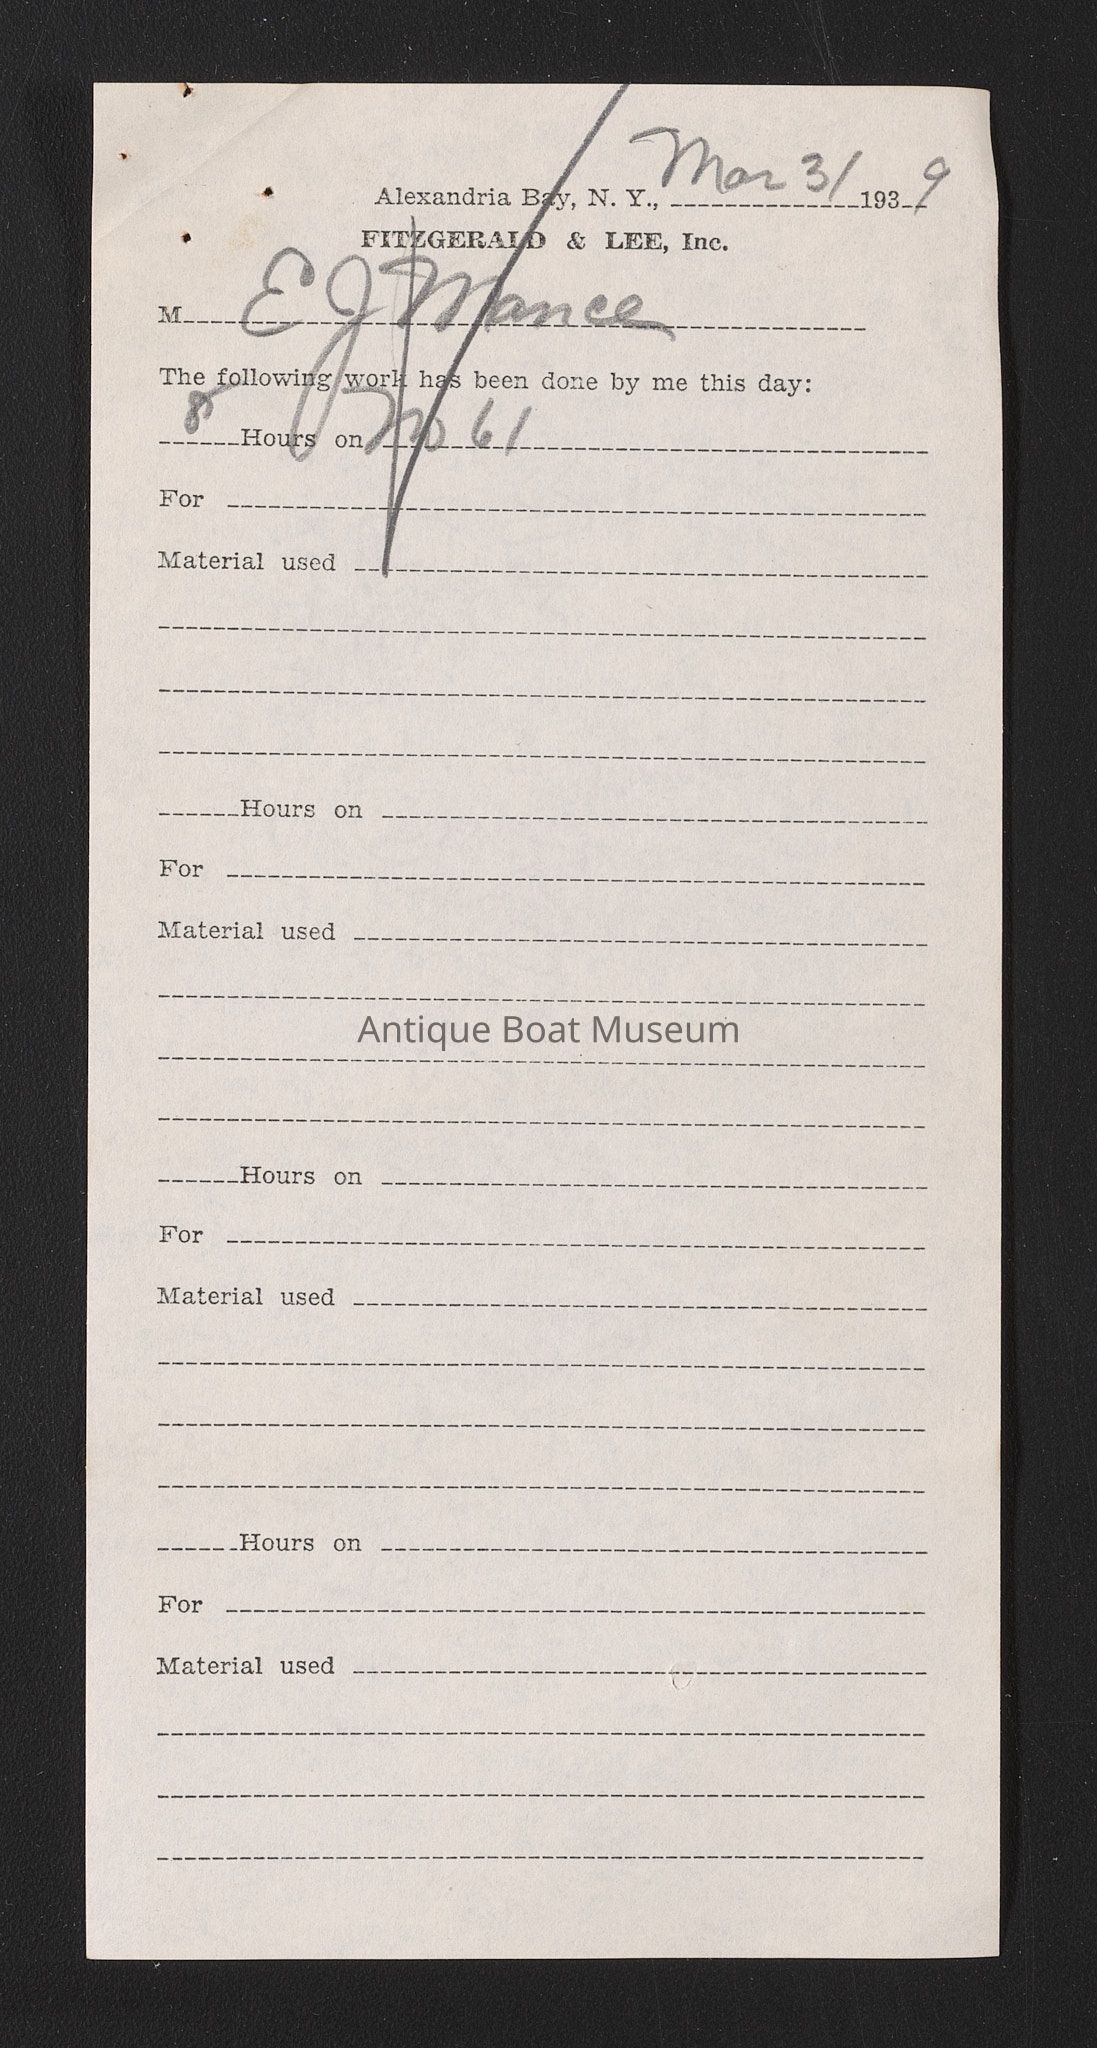 Alexandria Bay, N. Y., Mar 31 1939
FITZGERALD & LEE, Inc.
M E J Mance
The following work has been done by me this day:
8 Hours on No 61
For
Material used
Hours on
For
Material used
Antique Boat Museum
Hours on
For
Material used
Hours on
For
Material used